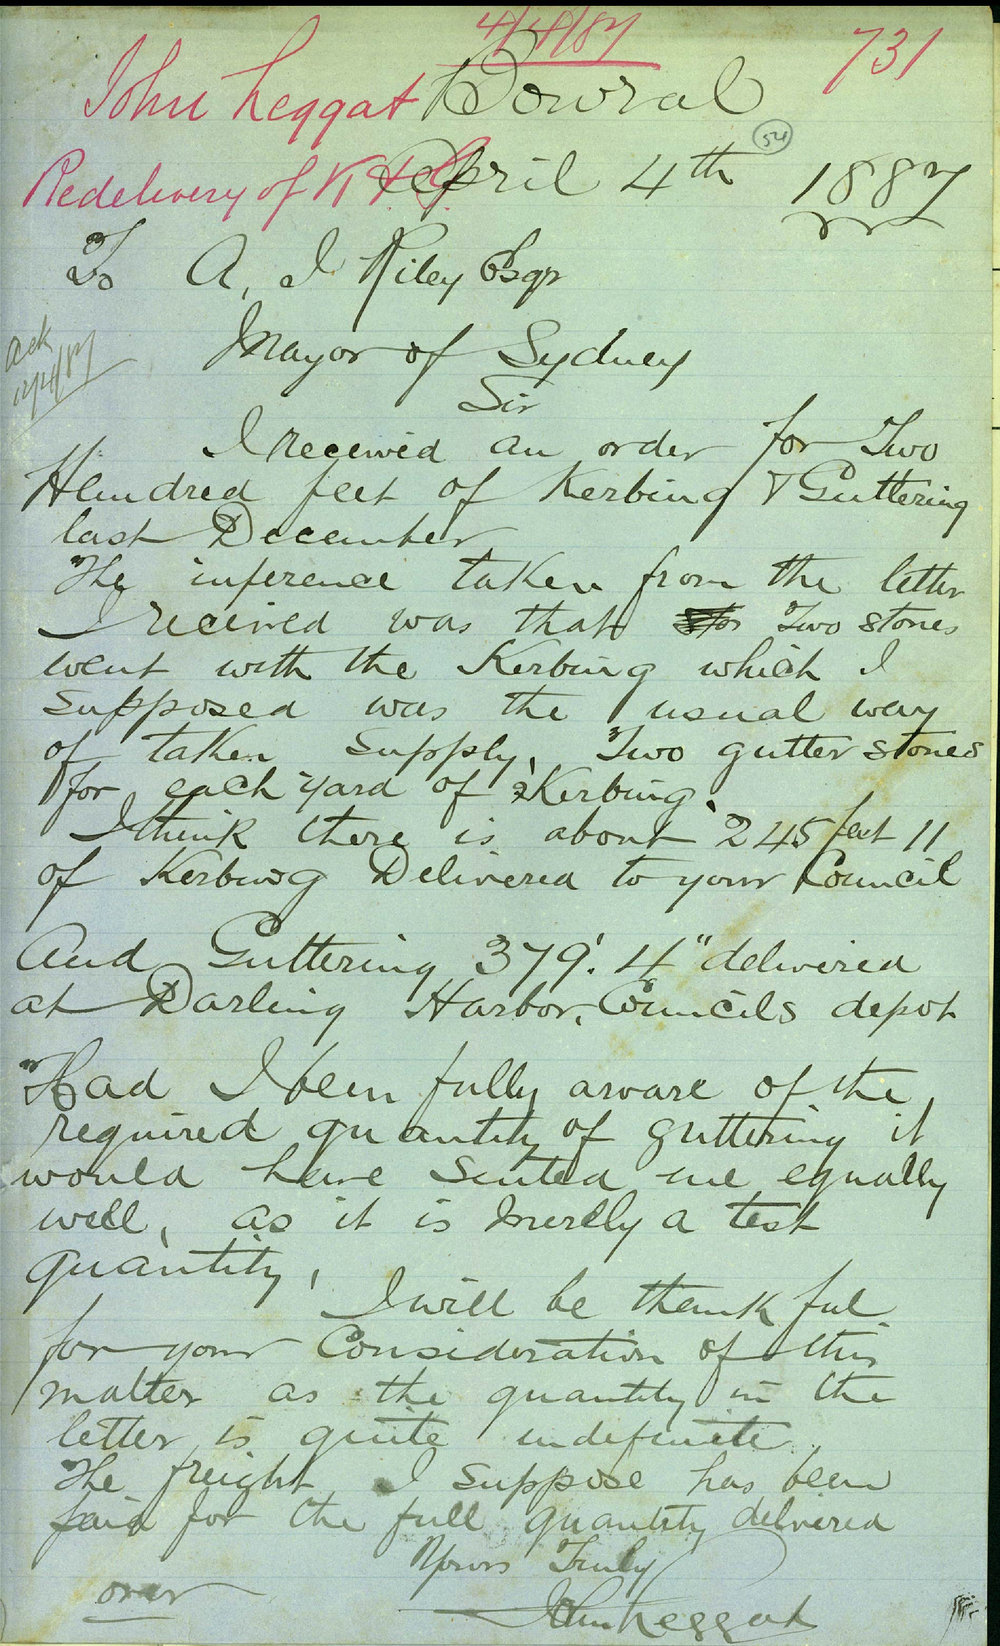 4/4/87
731
John Leggat
Bowral
54
Redelivery of K & G
April 4th 1887
To A, I Riley Esqr
Ack
12/4/87
Mayor of Sydney
Sir
I received an order for Two
Hundred feet of Kerbing & Guttering
last December
The inference taken from the letter
I received was that Two stones
went with the Kerbing which I
supposed was the usual way
of taken supply, Two gutter stones
for each yard of Kerbing.
I think there is about 245 feet 11
of Kerbing Delivered to your Council
And Guttering 379'. 4" delivered
at Darling Harbor, Councils depot
Had I been fully aware of the
required quantity of guttering it
would have suited me equally
well, as it is merely a test
quantity,
I will be thankful
for your Consideration of this
matter as the quantity in the
letter is quite indefinite.
The freight I suppose has been
paid for the full quantity delivered
Yours Truly
John Leggat
over